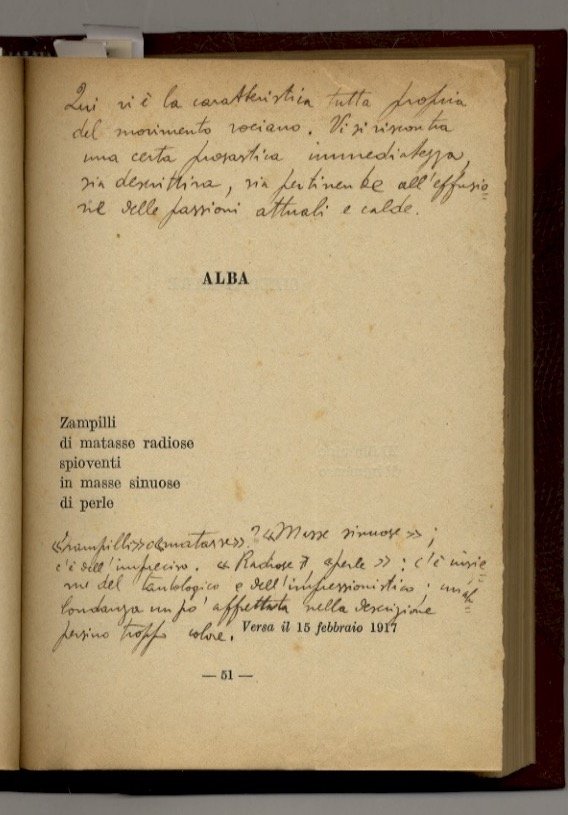 Qui vi è la caratteristica tutta propria
del movimento vociano. Vi si riscontra
una certa prosastica immediatezza,
sia descrittiva, sia pertinente all'effusio=
ne delle passioni attuali e calde.
ALBA
Zampilli
di matasse radiose
spioventi
in masse sinuose
di perle
«Zampilli» o «matasse»? «Masse sinuose»;
c'è dell'impreciso. «Radiose» e «perle»: c'è insie
me del tautologico e dell'impressionistico;
londanza un po' affrettata nella descrizione
persino troppo colore.
Versa il 15 febbraio 1917
— 51 —